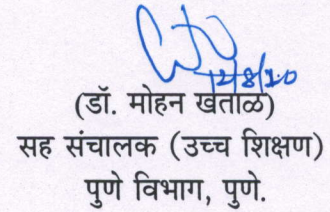 12/8/20
(डॉ. मोहन खताळ)
सह संचालक (उच्च शिक्षण)
पुणे विभाग, पुणे.